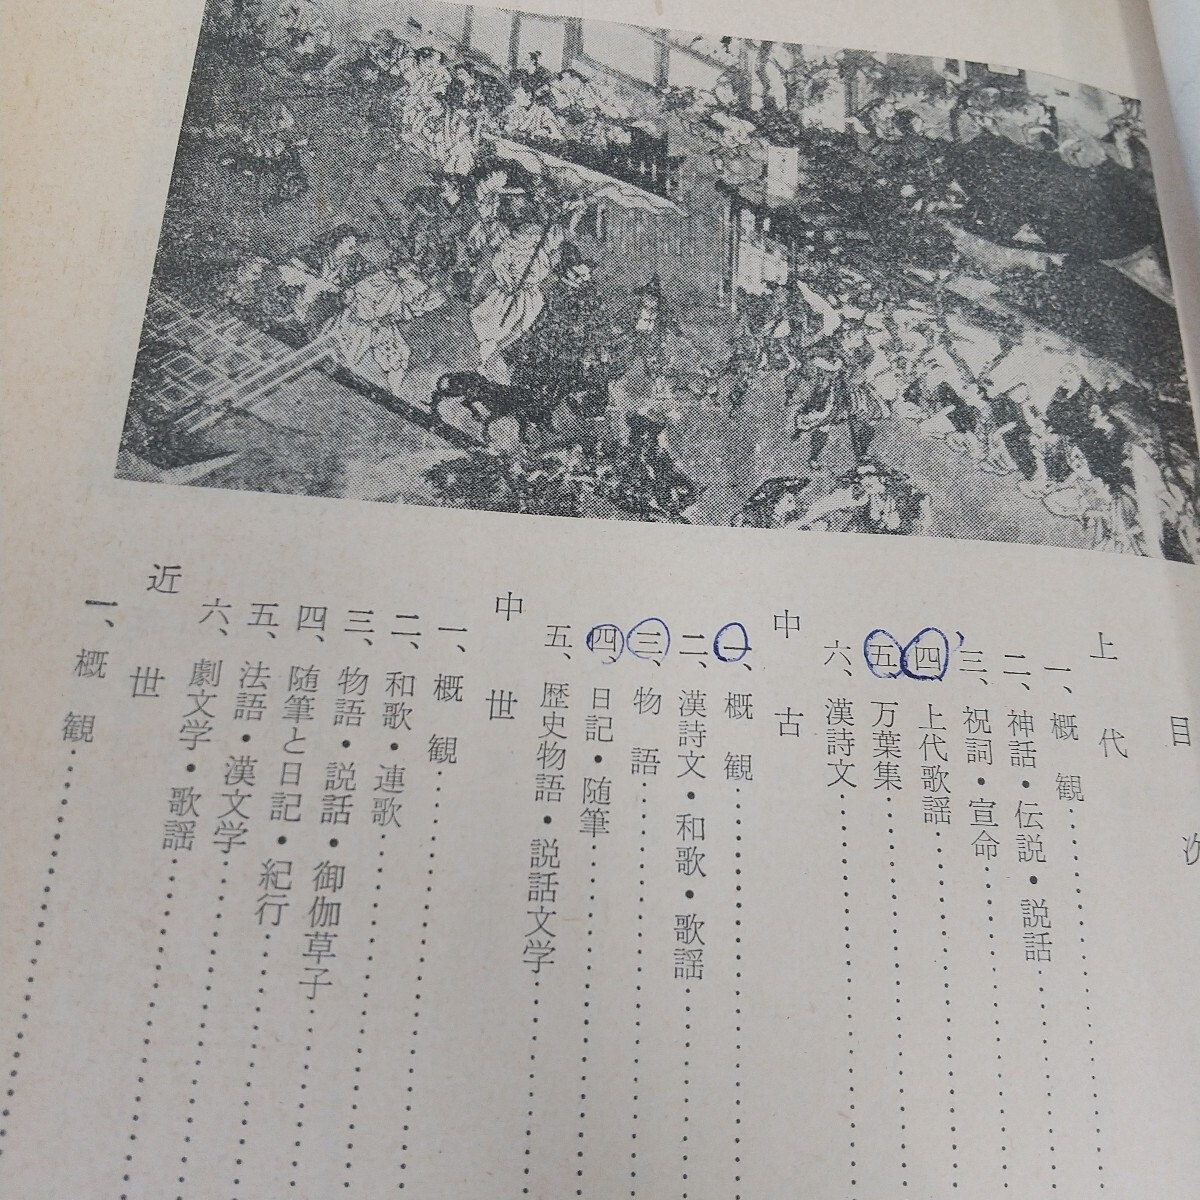 目次
上代
一、概観
二、神話・伝説・説話
三、祝詞・宣命
四、上代歌謡
五、万葉集
六、漢詩文
中古
一、概観
二、漢詩文・和歌・歌謡
三、物語
四、日記・随筆
五、歴史物語・説話文学
中世
一、概観
二、和歌・連歌
三、物語・説話・御伽草子
四、随筆と日記・紀行
五、法語・漢文学
六、劇文学・歌謡
近世
一、概観